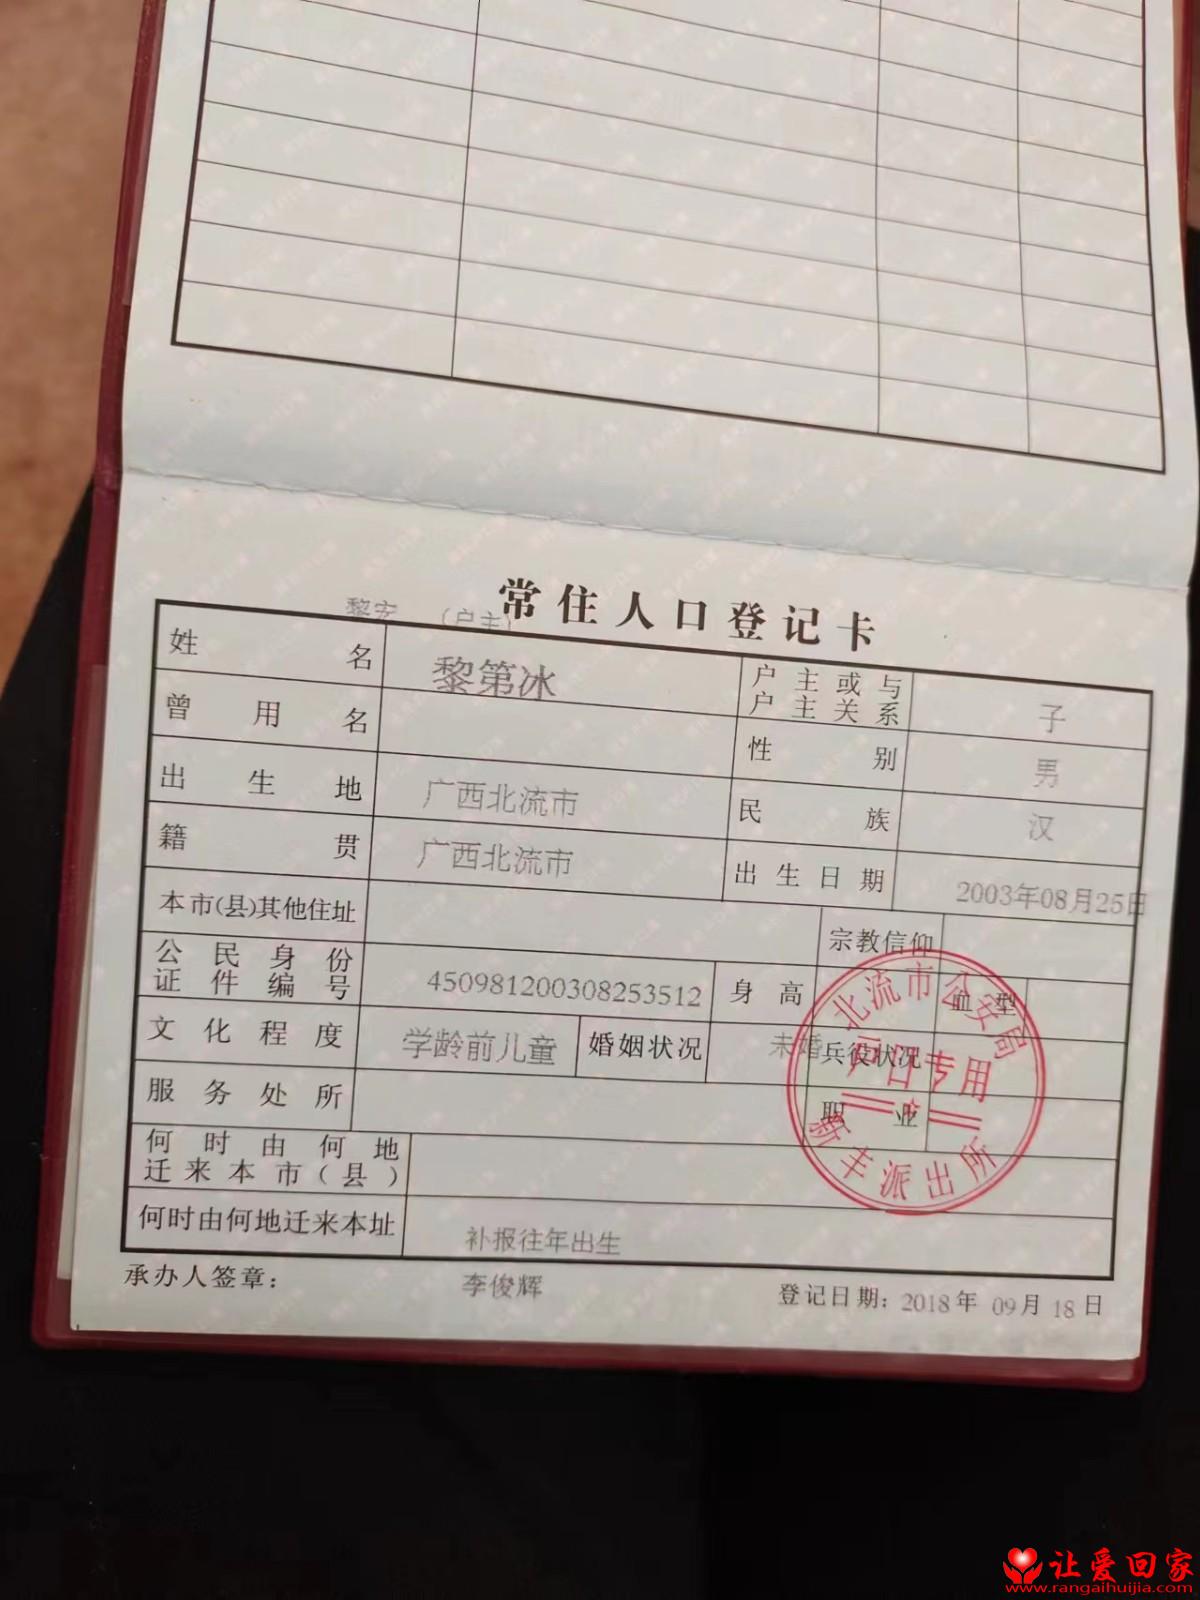 黎宏 （户主）
常住人口登记卡
姓名 黎第冰 户主或与户主关系 子
曾用名 性别 男
出生地 广西北流市 民族 汉
籍贯 广西北流市 出生日期 2003年08月25日
本市(县)其他住址 宗教信仰
公民身份证件编号 450981200308253512 身高 血型
文化程度 学龄前儿童 婚姻状况 未婚 兵役状况
服务处所 职业
何时由何地迁来本市(县)
何时由何地迁来本址 补报往年出生
承办人签章： 李俊辉 登记日期：2018年09月18日
北流市公安局
户口专用
新丰派出所
让爱回家
www.rangaihuijia.com